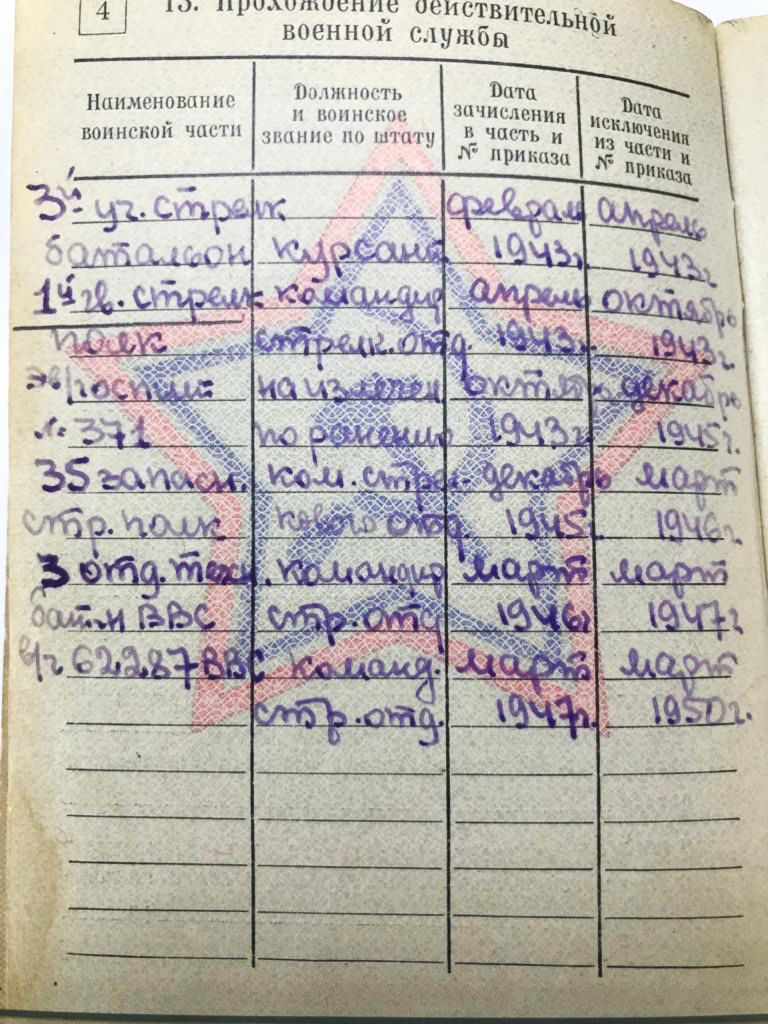 4
13. Прохождение действительной
военной службы
Наименование воинской части
Должность и воинское звание по штату
Дата зачисления в часть и № приказа
Дата исключения из части и № приказа
3й уч. стрелк февраль апрель
батальон курсант 1943г. 1943г
1й гв. стрелк командир апрель октябрь
полк стрелк. отд. 1943г. 1943г.
эв/госпит на излечен октябрь декабрь
№ 371 по ранению 1943г 1945г.
35 запасн. ком. стрел- декабрь март
стр. полк кового отд. 1945г. 1946г.
3 отд. техн. командир март март
бат-н ВВС стр. отд 1946г 1947г
в/ч 62287 ВВС команд. март март
стр. отд. 1947г. 1950г.